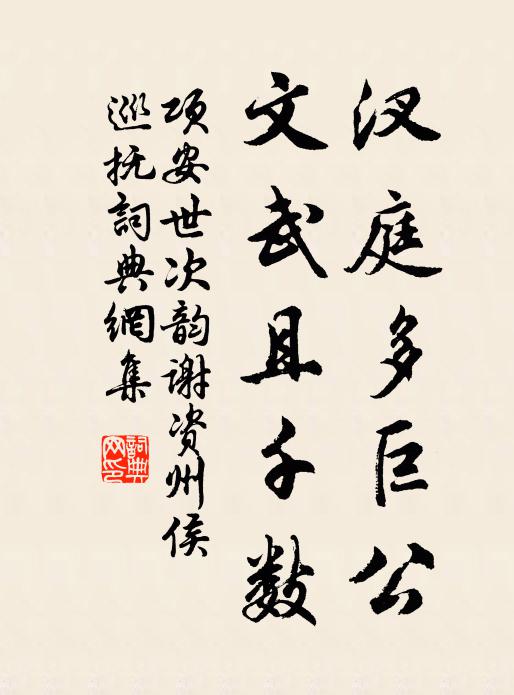 汉庭多巨公
文武且千数
项安世次韵谢资州侯
巡抚詞典網集
詞典網印